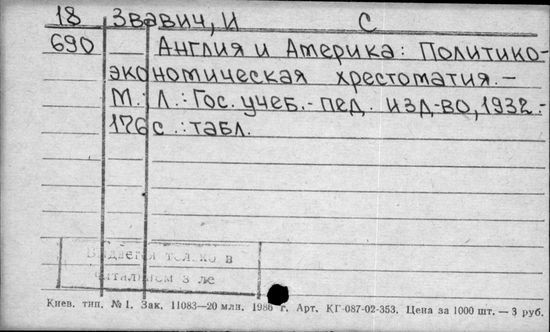 18 Звавич, И С
690 Англия и Америка: Политико-
экономическая хрестоматия.–
М.: Л.: Гос. учеб.- пед. изд-во, 1932.-
176 с.: табл.
Выдается только в
читальном з ле
Киев. тип. № 1. Зак. 11083—20 млн. 1986 г. Арт. КГ-087-02-353. Цена за 1000 шт. — 3 руб.